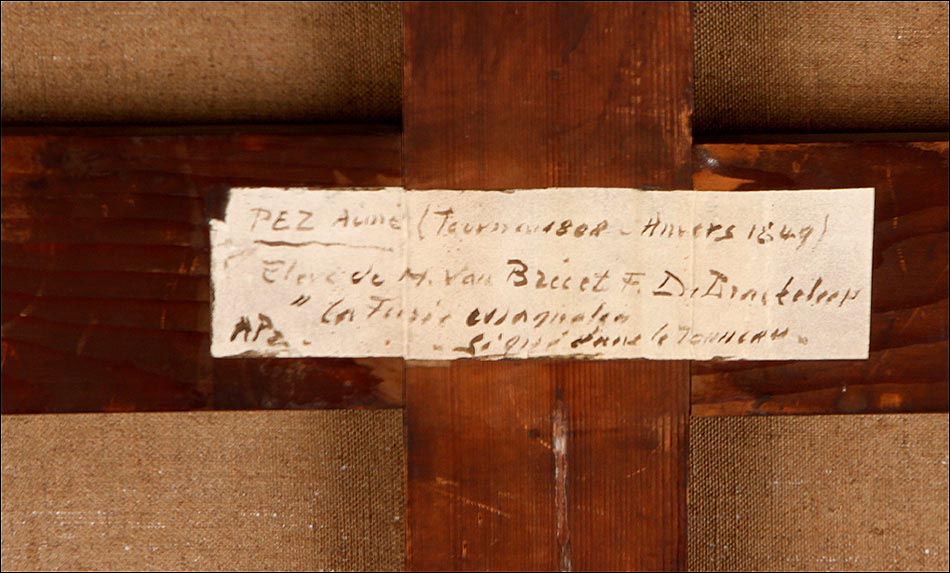 PEZ Aimé (Tournai 1808 - Anvers 1849)
Elève de M. Van Bree et F. De Braekeleer
" La Furie espagnole
APz. - Signé dans le tonneau.